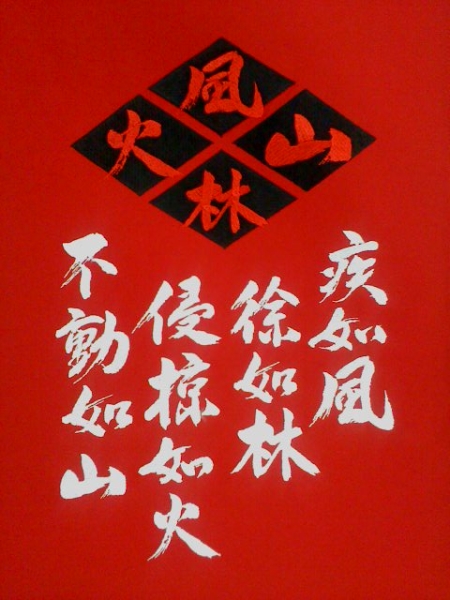 風
林
火
山
疾如風
徐如林
侵掠如火
不動如山